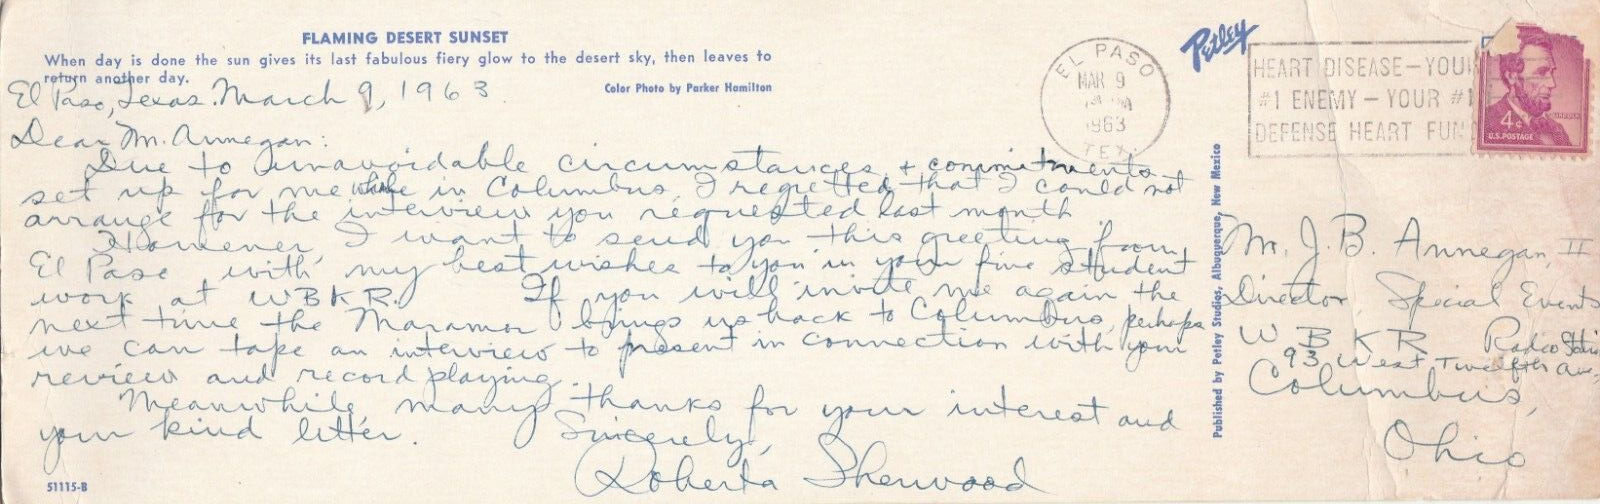 FLAMING DESERT SUNSET
When day is done the sun gives its last fabulous fiery glow to the desert sky, then leaves to
return another day.
Color Photo by Parker Hamilton
El Paso, Texas. March 9, 1963
Dear Mr. Annegan:
Due to unavoidable circumstances + commitments
set up for me while in Columbus, I regretted that I could not
arrange for the interview you requested last month.
However, I want to send you this greeting from
El Paso, with my best wishes to you in your fine student
work at WBKR. If you will invite me again the
next time the Maramor brings us back to Columbus, perhaps
we can tape an interview to present in connection with your
review and record playing.
Meanwhile, many thanks for your interest and
your kind letter.
Sincerely,
Roberta Sherwood
51115-B
Published by Petley Studios, Albuquerque, New Mexico
Petley
EL PASO
MAR 9
1963
TEX.
HEART DISEASE—YOUR
#1 ENEMY — YOUR #1
DEFENSE HEART FUND
LINCOLN
4¢
U.S. POSTAGE
Mr. J. B. Annegan, II
Director, Special Events
W B K R Radio
93 West Twelfth Ave.,
Columbus,
Ohio